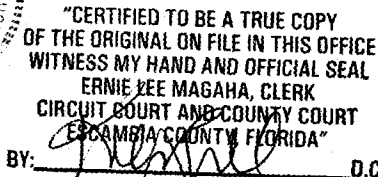 "CERTIFIED TO BE A TRUE COPY
OF THE ORIGINAL ON FILE IN THIS OFFICE
WITNESS MY HAND AND OFFICIAL SEAL
ERNIE LEE MAGAHA, CLERK
CIRCUIT COURT AND COUNTY COURT
ESCAMBIA COUNTY FLORIDA"
BY: D.C